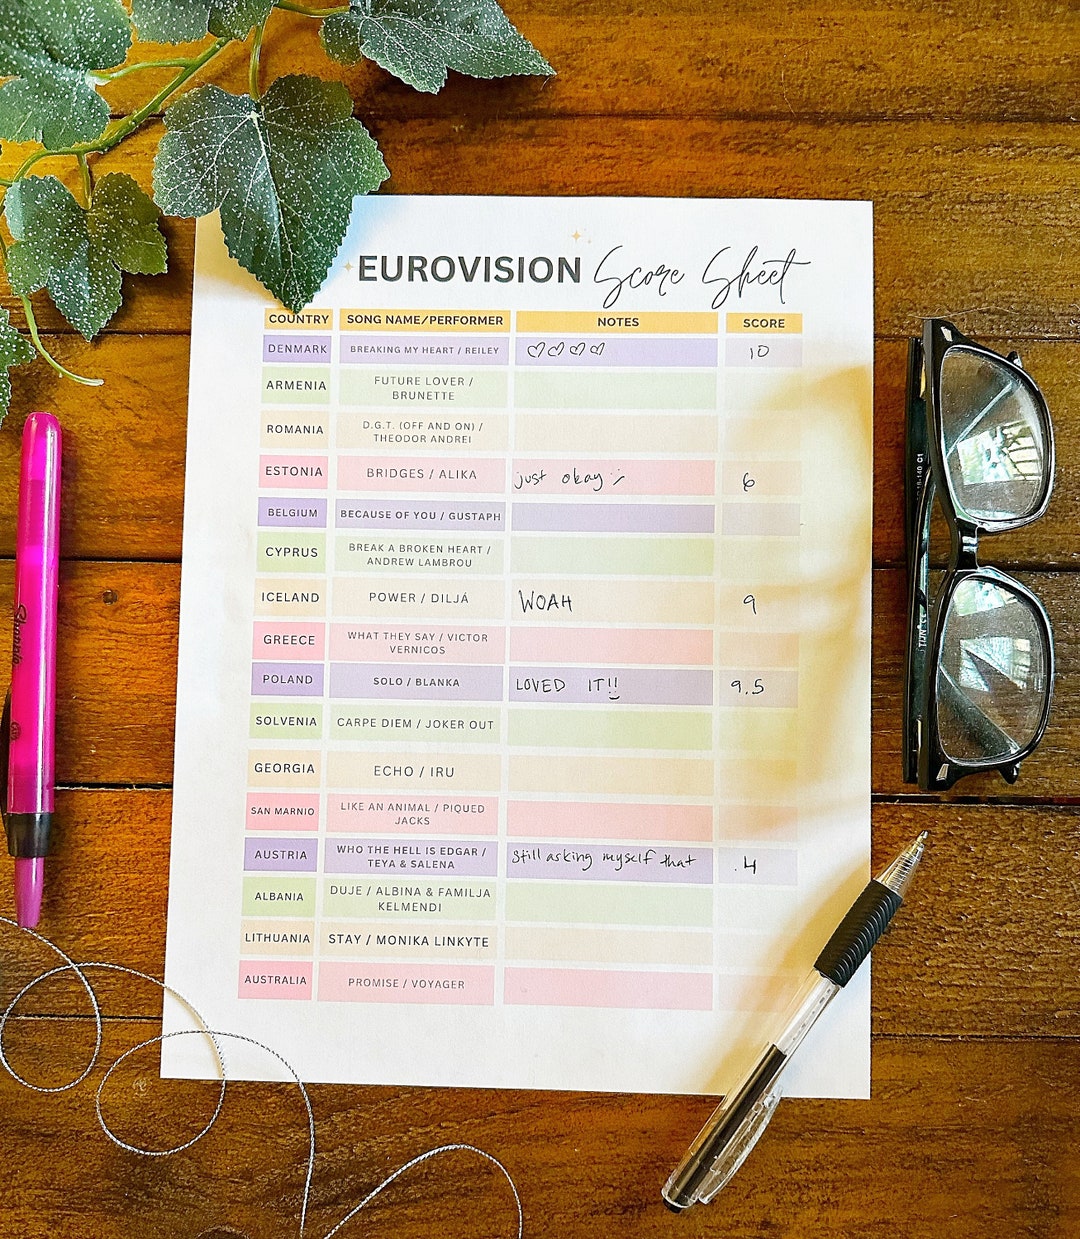 EUROVISION Score Sheet
COUNTRY SONG NAME/PERFORMER NOTES SCORE
DENMARK BREAKING MY HEART / REILEY ♡♡♡♡ 10
ARMENIA FUTURE LOVER /
BRUNETTE
ROMANIA D.G.T. (OFF AND ON) /
THEODOR ANDREI
ESTONIA BRIDGES / ALIKA just okay :/ 6
BELGIUM BECAUSE OF YOU / GUSTAPH
CYPRUS BREAK A BROKEN HEART /
ANDREW LAMBROU
ICELAND POWER / DILJÁ WOAH 9
GREECE WHAT THEY SAY / VICTOR
VERNICOS
POLAND SOLO / BLANKA LOVED IT!! 9.5
SOLVENIA CARPE DIEM / JOKER OUT
GEORGIA ECHO / IRU
SAN MARNIO LIKE AN ANIMAL / PIQUED
JACKS
AUSTRIA WHO THE HELL IS EDGAR /
TEYA & SALENA Still asking myself that .4
ALBANIA DUJE / ALBINA & FAMILJA
KELMENDI
LITHUANIA STAY / MONIKA LINKYTE
AUSTRALIA PROMISE / VOYAGER
Sharpie